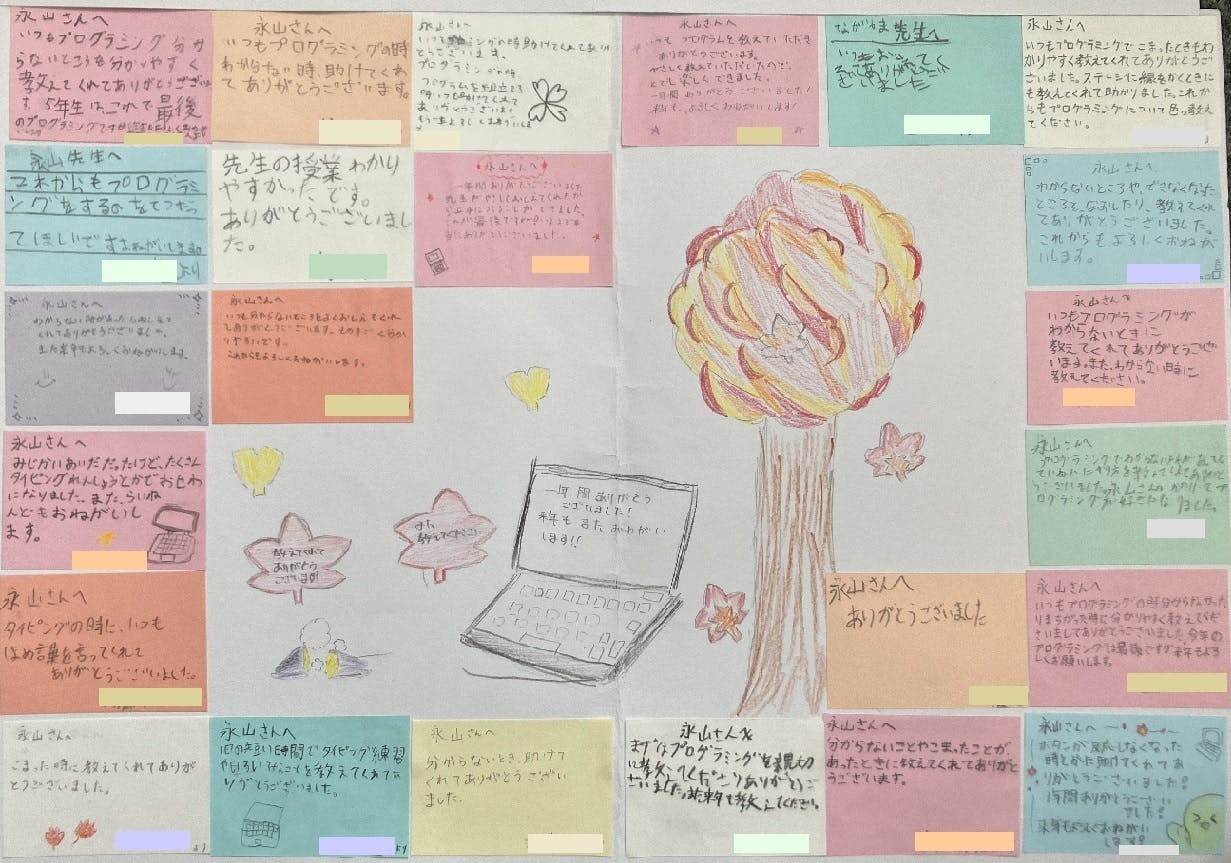 永山さんへ
いつもプログラミング分か
らないところを分かりやすく
教えてくれてありがとうござい
ます。5年生はこれで最後
のプログラミングですが
永山さんへ
いつもプログラミングの時
わからない時、助けてくれ
てありがとうございます。
永山さんへ
うございます。
プログラミングの時
ありがとうございます
永山さんへ
いつもプログラムを教えていただき
ありがとうございます。
やさしく教えていただいたので、
とても楽しくできました。
一年間ありがとうございました!
来年もよろしくおねがいします!
ながやま先生へ
ありがとう
ございました
永山さんへ
いつもプログラミングでこまったときもわ
かりやすく教えてくれてありがとうご
ざいました。ステージに線をかくときに
も教えてくれて助かりました。これか
らもプログラミングについて色々教え
てください。
永山先生へ
これからもプログラミ
ングをする
てほしいです
より
先生の授業わかり
やすかったです。
ありがとうございまし
た。
永山さんへ
一年間ありがとうございました
永山さんへ
わからないところや、できなくなった
ところを、なおしたり、教えてくれ
てありがとうございました。
これからもよろしくおねが
いします。
永山さんへ
わからない時があったらおしえて
くれてありがとうございました。
また来年もよろしくおねがいします。
永山さんへ
いつも分からないところをよくおしえてくれ
てありがとうございます。
りやすいです。
これからもよろしくおねがいします。
永山さんへ
いつもプログラミングが
わからないときに
教えてくれてありがとうござ
います。また、わからない時に
教えてください。
永山さんへ
みじかいあいだだったけど、たくさん
タイピングれんしゅうとかでおせわ
になりました。また、らいね
んどもおねがいし
ます。
一年間ありがとう
ございました!
来年もまたおねがい
します!!
教えてくれて
ありがとう
ございます!
また
教えてください
永山さんへ
プログラミングでわからない
ていねいにやり方を
うございました。
ログラミングが好きになりました。
永山さんへ
タイピングの時に、いつも
ほめ言葉を言ってくれて
ありがとうございました。
永山さんへ
ありがとうございました
永山さんへ
いつもプログラミングの時分からなかった
りまちがった時に分かりやすく教えてくだ
さいましてありがとうございました。今年の
プログラミングは最後ですが来年もよろ
しくお願いします。
永山さんへ
こまった時に教えてくれてありが
とうございました。
より
永山さんへ
1日の短い時間でタイピング練習
やいろいろなことを教えてくれてあ
りがとうございました。
より
永山さんへ
分からないとき、助けて
くれてありがとうござい
ました。
永山さんへ
プログラミングを親切
に教えてくださりありがとうご
ざいました。来年も教えてください。
永山さんへ
分からないことやこまったことが、
あったときに教えてくれてありがと
うございます。
永山さんへ
ボタンが反応しなくなった
時とかに助けてくれてあ
りがとうございました!
1年間ありがとうござい
ました!
来年もよろしくおねがい
します!